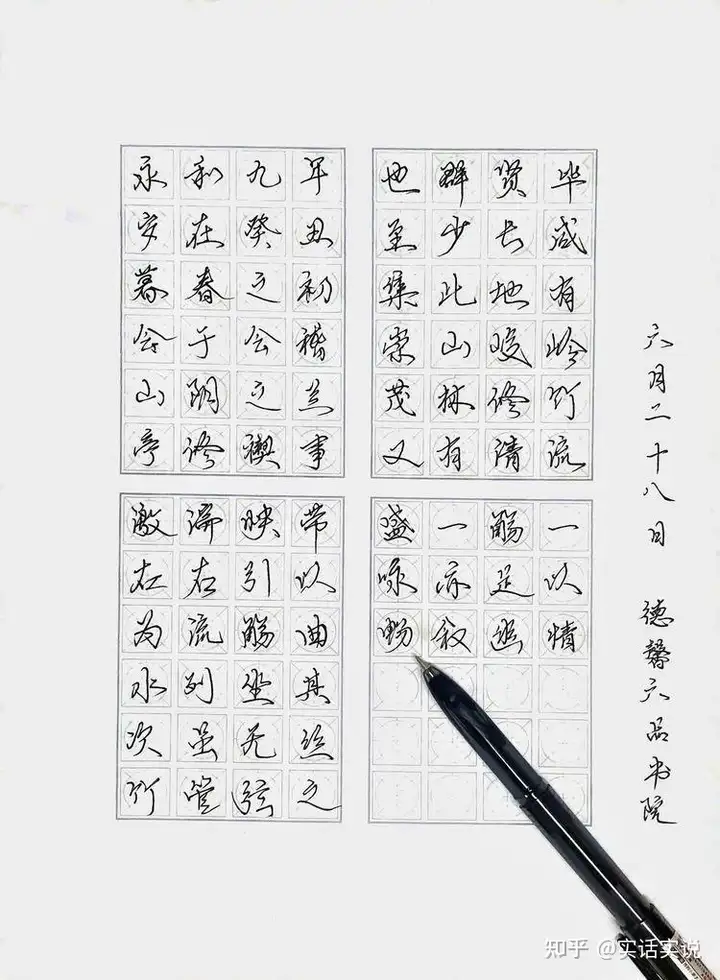 永和九年
岁在癸丑
暮春之初
会于会稽
山阴之兰
亭修禊事
也群贤毕
至少长咸
集此地有
崇山峻岭
茂林修竹
又有清流
激湍映带
左右引以
为流觞曲
水列坐其
次虽无丝
竹管弦之
盛一觞一
咏亦足以
畅叙幽情
六月二十八日 德馨六品书院
知乎 @实话实说